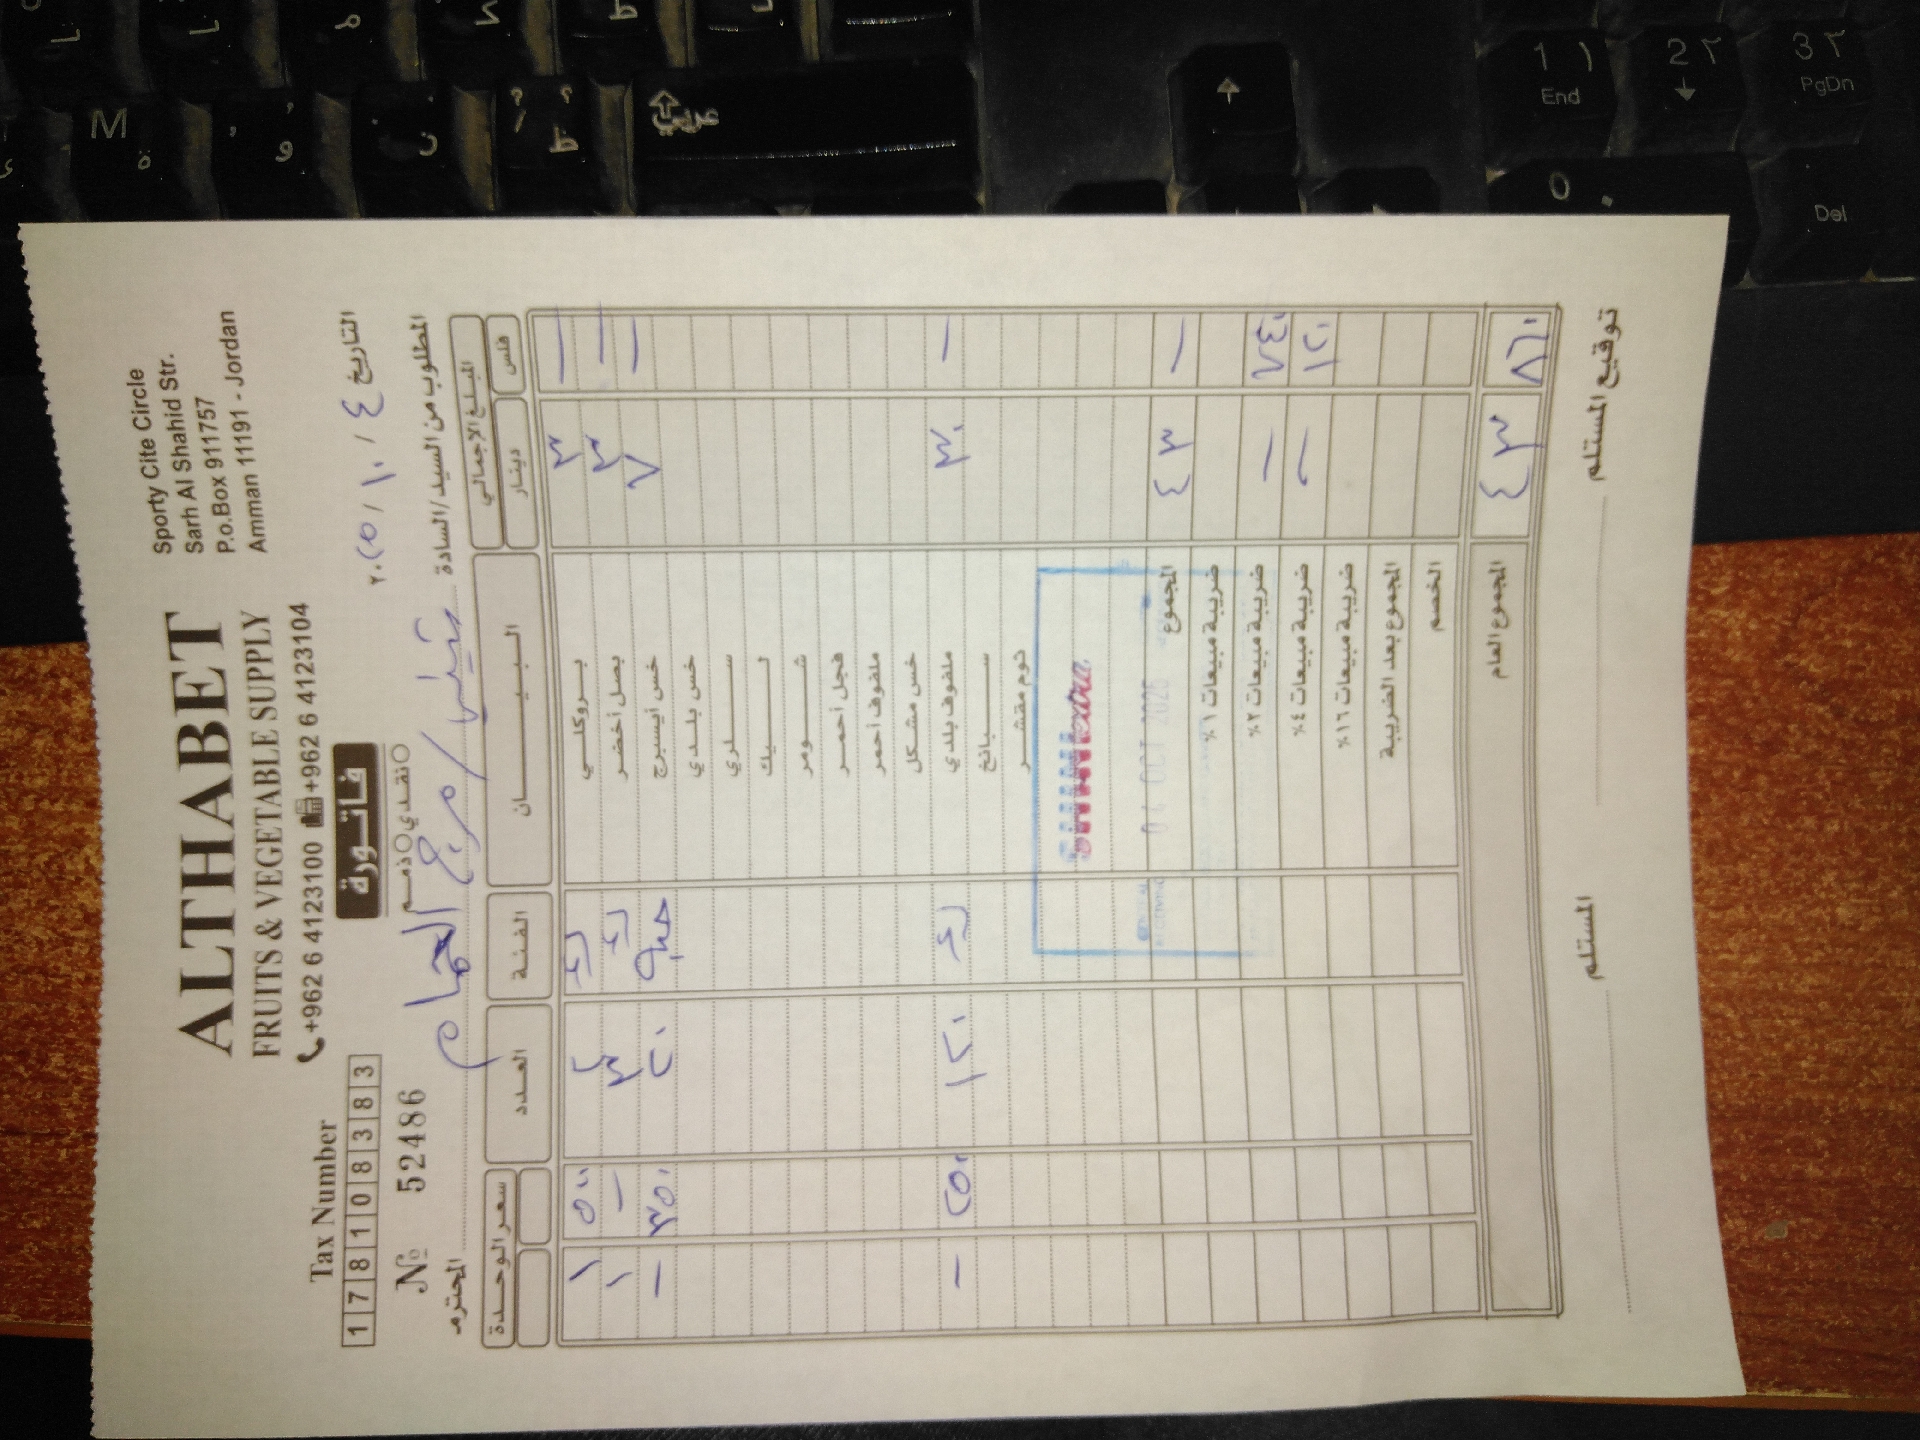 ALTHABET
FRUITS & VEGETABLE SUPPLY
+962 6 4123100 +962 6 4123104
Sporty Cite Circle
Sarh Al Shahid Str.
P.o.Box 911757
Amman 11191 - Jordan
Tax Number
1 7 8 1 0 8 3 8 3
فاتورة
ذمم نقدي
№ 52486
التاريخ ٤ / ١٠ / ٢٠٢٥
المطلوب من السيد/السادة المحترم
المبلغ الاجمالي البيـــــان الفئـة العـدد سعر الوحـدة
فلس دينار
— ٣ بـروكلـي ٢ ١ ٥٠٠
— ٣ بصل أخضر ٣ ١ —
— ٧ خس آيسبرج حبه ٢٠ — ٣٥٠
خس بلـدي
سـلـري
لـيـك
شـومـر
فجل أحمر
ملفوف أحمر
خس مشكل
— ٣٠ ملفوف بلدي ١٢٠ — ٢٥٠
سـبـانخ
ثوم مقشـر
04 OCT 2025
— ٤٣ المجموع
ضريبة مبيعات ١٪
٧٤٠ — ضريبة مبيعات ٢٪
١٢٠ — ضريبة مبيعات ٤٪
ضريبة مبيعات ١٦٪
المجموع بعد الضريبة
الخصم
٨٦٠ ٤٣ المجموع العام
توقيع المستلم المستلم
M ة
و
عربي
1 ١ End
2 ٢
3 ٣ PgDn
0 .
Del